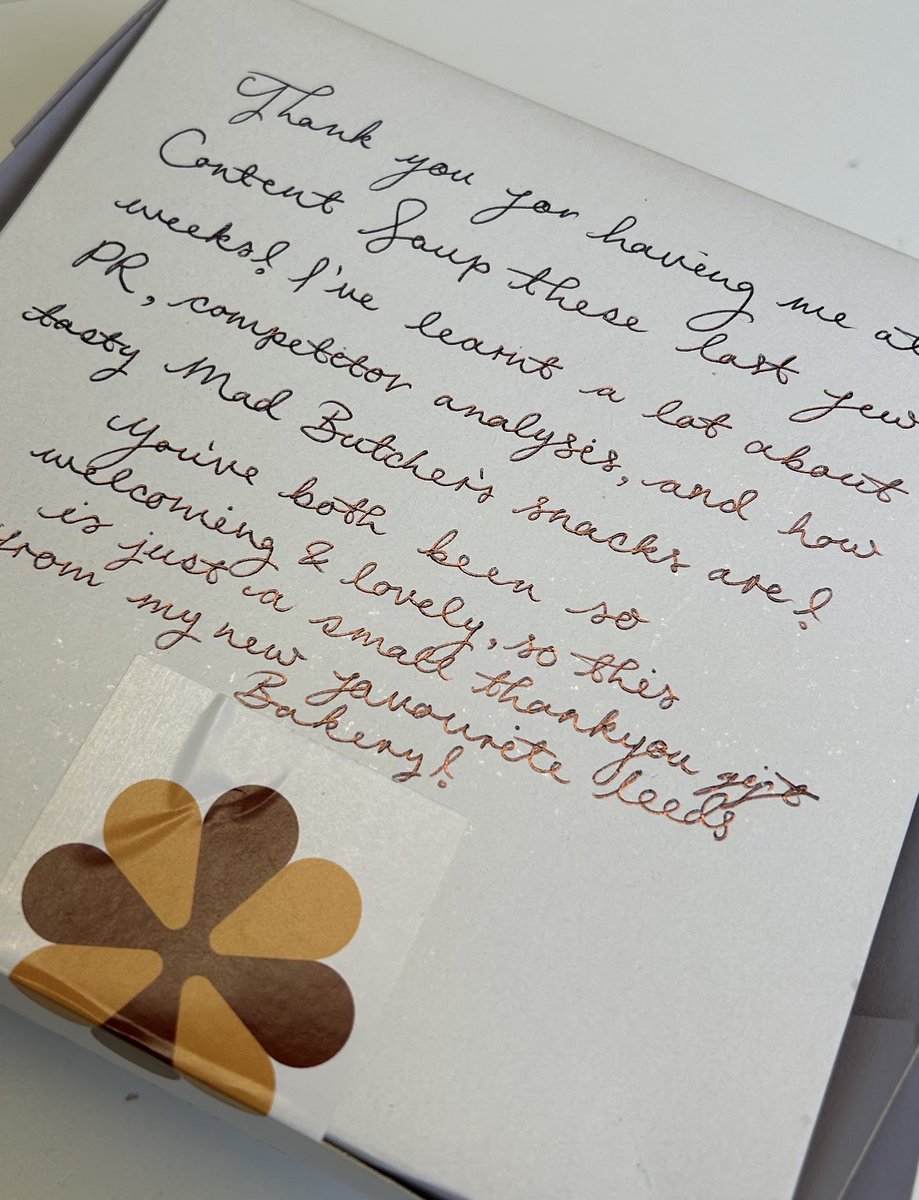 Thank you for having me at
Content Soup these last few
weeks! I've learnt a lot about
PR, competitor analysis, and how
tasty Mad Butcher's snacks are!
You've both been so
welcoming & lovely, so this
is just a small thankyou gift
from my new favourite Leeds
Bakery!